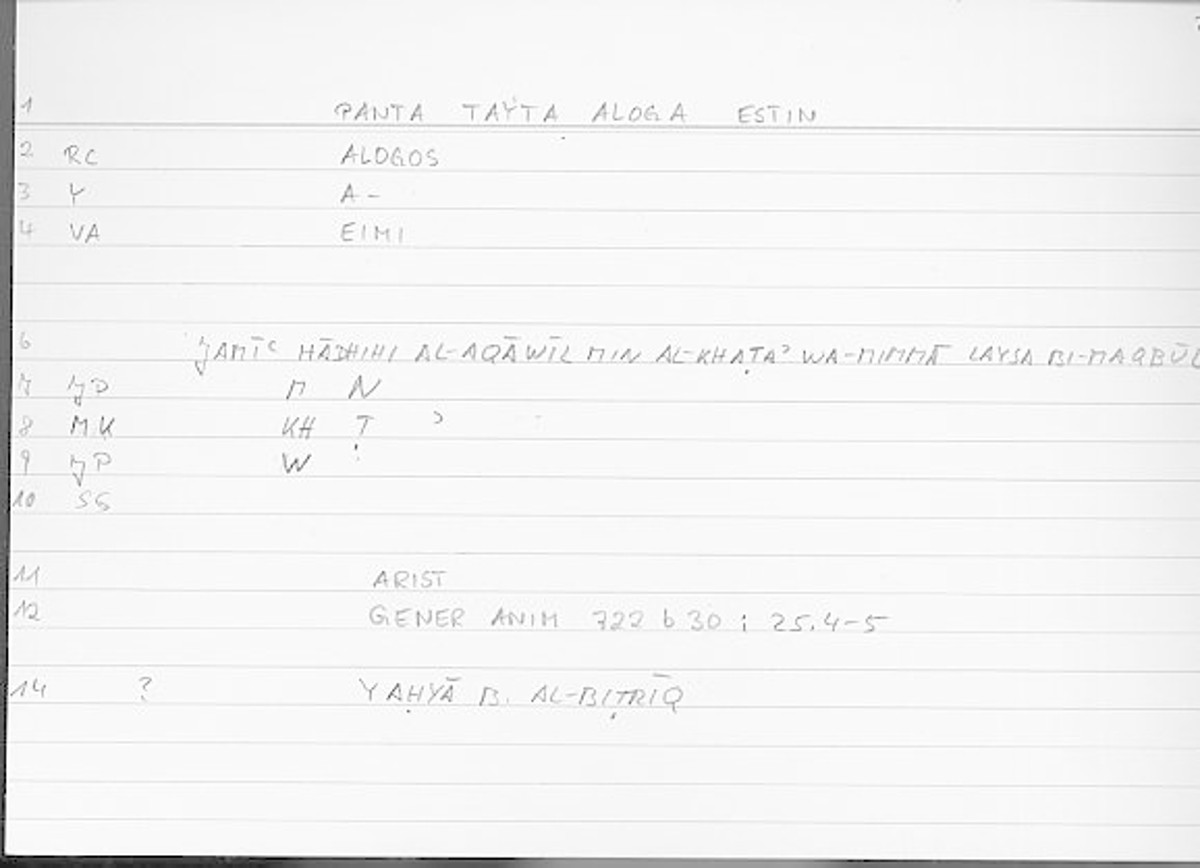 1 PANTA TAYTA ALOGA ESTIN
2 RC ALOGOS
3 Y A -
4 VA EIMI
6 JAMĪʿ HĀDHIHI AL-AQĀWĪL MIN AL-KHAṬAʾ WA-MIMMĀ LAYSA BI-MAQBŪL
7 JD M N
8 MK KH Ṭ ʾ
9 JP W
10 SS
11 ARIST
12 GENER ANIM 722 b 30 ; 25.4-5
14 ? YAḤYĀ B. AL-BIṬRĪQ